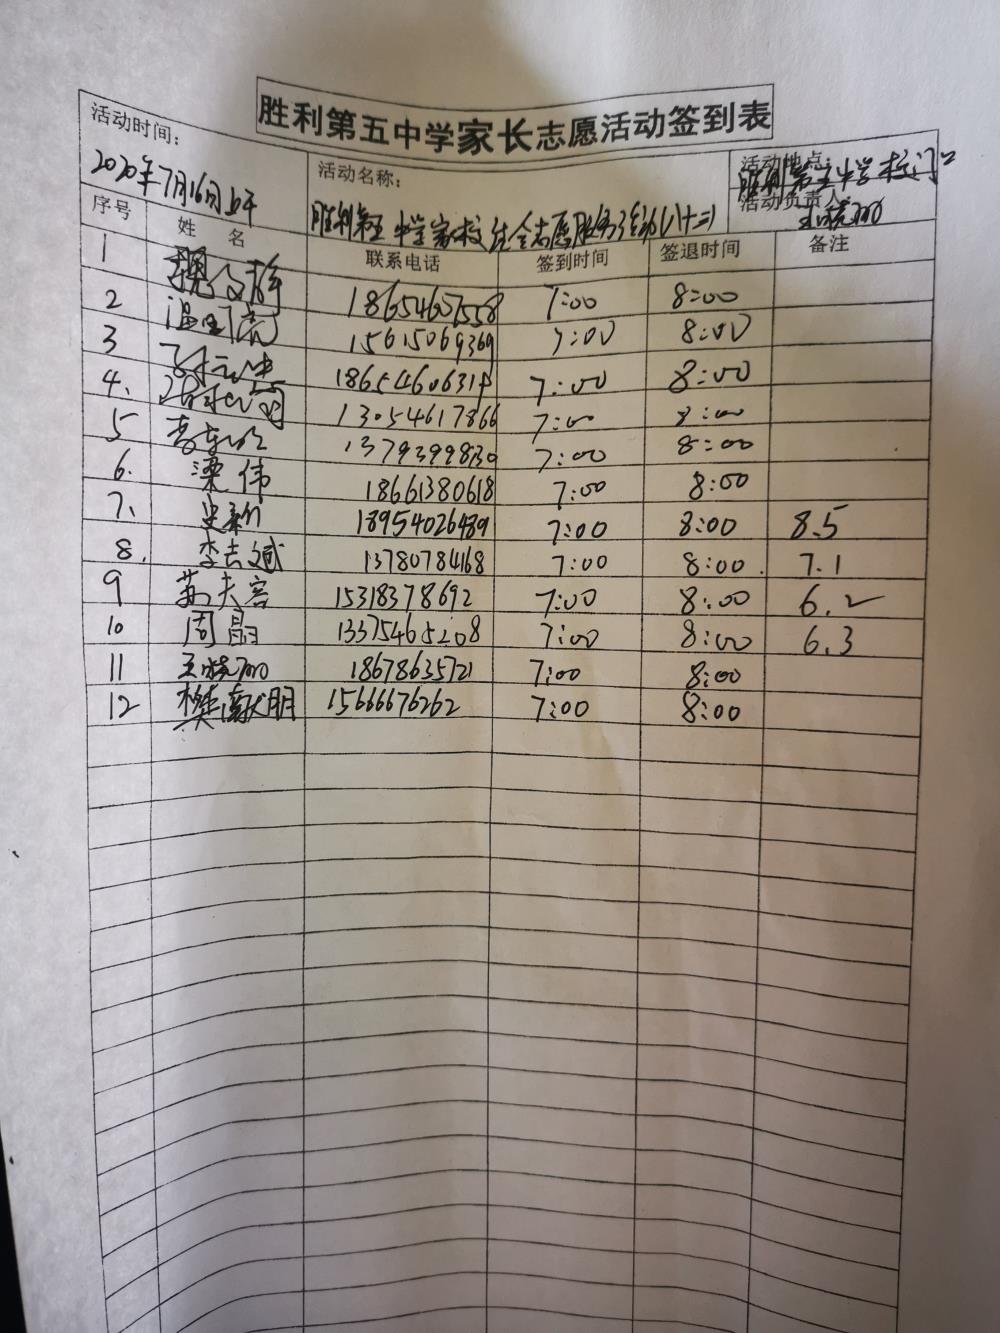 胜利第五中学家长志愿活动签到表
活动时间： 2020年7月16日上午
活动名称： 胜利第五中学家校社会志愿服务活动(八十二)
活动地点： 胜利第五中学校门口
活动负责人
序号 姓名 联系电话 签到时间 签退时间 备注
1 18654607558 7:00 8:00
2 15615069369 7:00 8:00
3 1865460631 7:00 8:00
4、 13054617866 7:00 8:00
5 13793998830 7:00 8:00
6. 梁伟 18661380618 7:00 8:00
7、 史新 18954026489 7:00 8:00 8.5
8. 李吉斌 13780784168 7:00 8:00 7.1
9 苏夫容 15318378692 7:00 8:00 6.2
10 周晶 13375465208 7:00 8:00 6.3
11 18678635721 7:00 8:00
12 樊献朋 15666676262 7:00 8:00